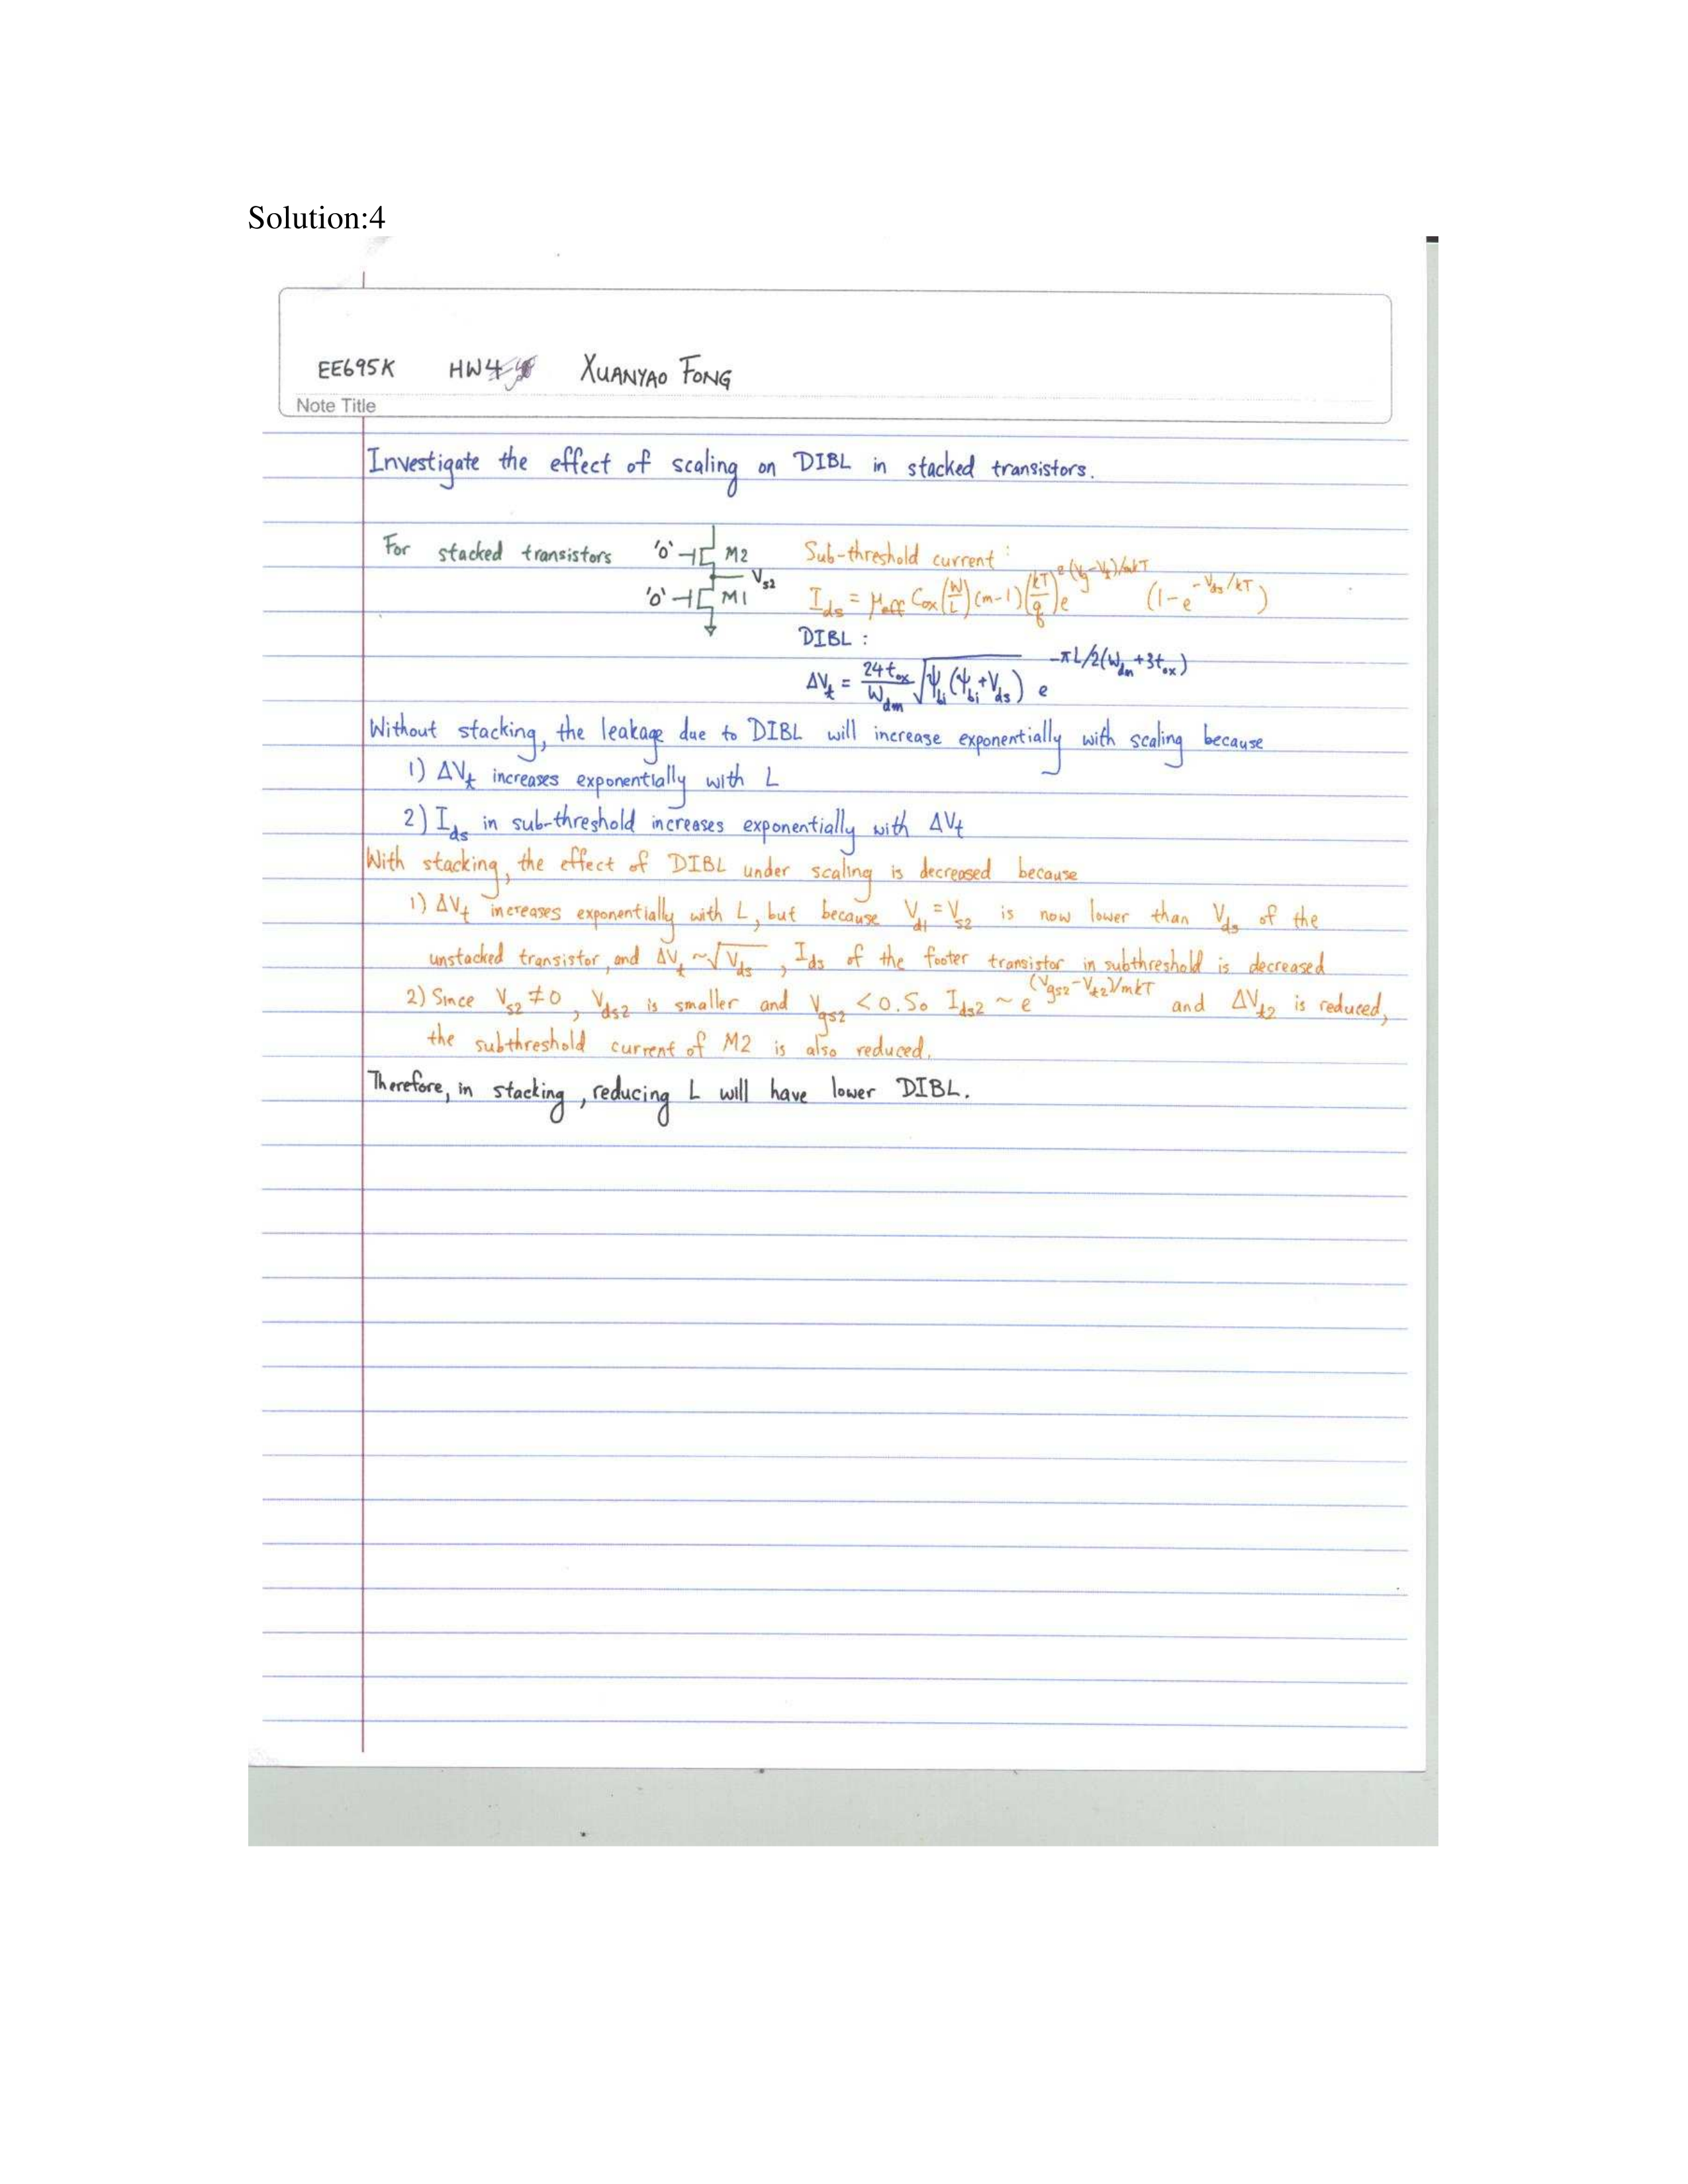 Solution:4
EE695K HW4 XUANYAO FONG
Note Title
Investigate the effect of scaling on DIBL in stacked transistors.
For stacked transistors '0' M2 Sub-threshold current :
Vs2
'0' M1 I_ds = μ_eff C_ox (W/L) (m-1) (kT/q)^2 e^{(V_g-V_t)/mkT} (1-e^{-V_ds/kT})
DIBL :
ΔV_t = 24t_ox/W_dm √(ψ_bi (ψ_bi+V_ds)) e^{-πL/2(W_dm+3t_ox)}
Without stacking, the leakage due to DIBL will increase exponentially with scaling because
1) ΔV_t increases exponentially with L
2) I_ds in sub-threshold increases exponentially with ΔV_t
With stacking, the effect of DIBL under scaling is decreased because
1) ΔV_t increases exponentially with L, but because V_d1 = V_s2 is now lower than V_ds of the
unstacked transistor, and ΔV_t ~ √V_ds , I_ds of the footer transistor in subthreshold is decreased
2) Since V_s2 ≠ 0, V_ds2 is smaller and V_gs2 < 0. So I_ds2 ~ e^{(V_gs2-V_t2)/mkT} and ΔV_t2 is reduced,
the subthreshold current of M2 is also reduced.
Therefore, in stacking, reducing L will have lower DIBL.